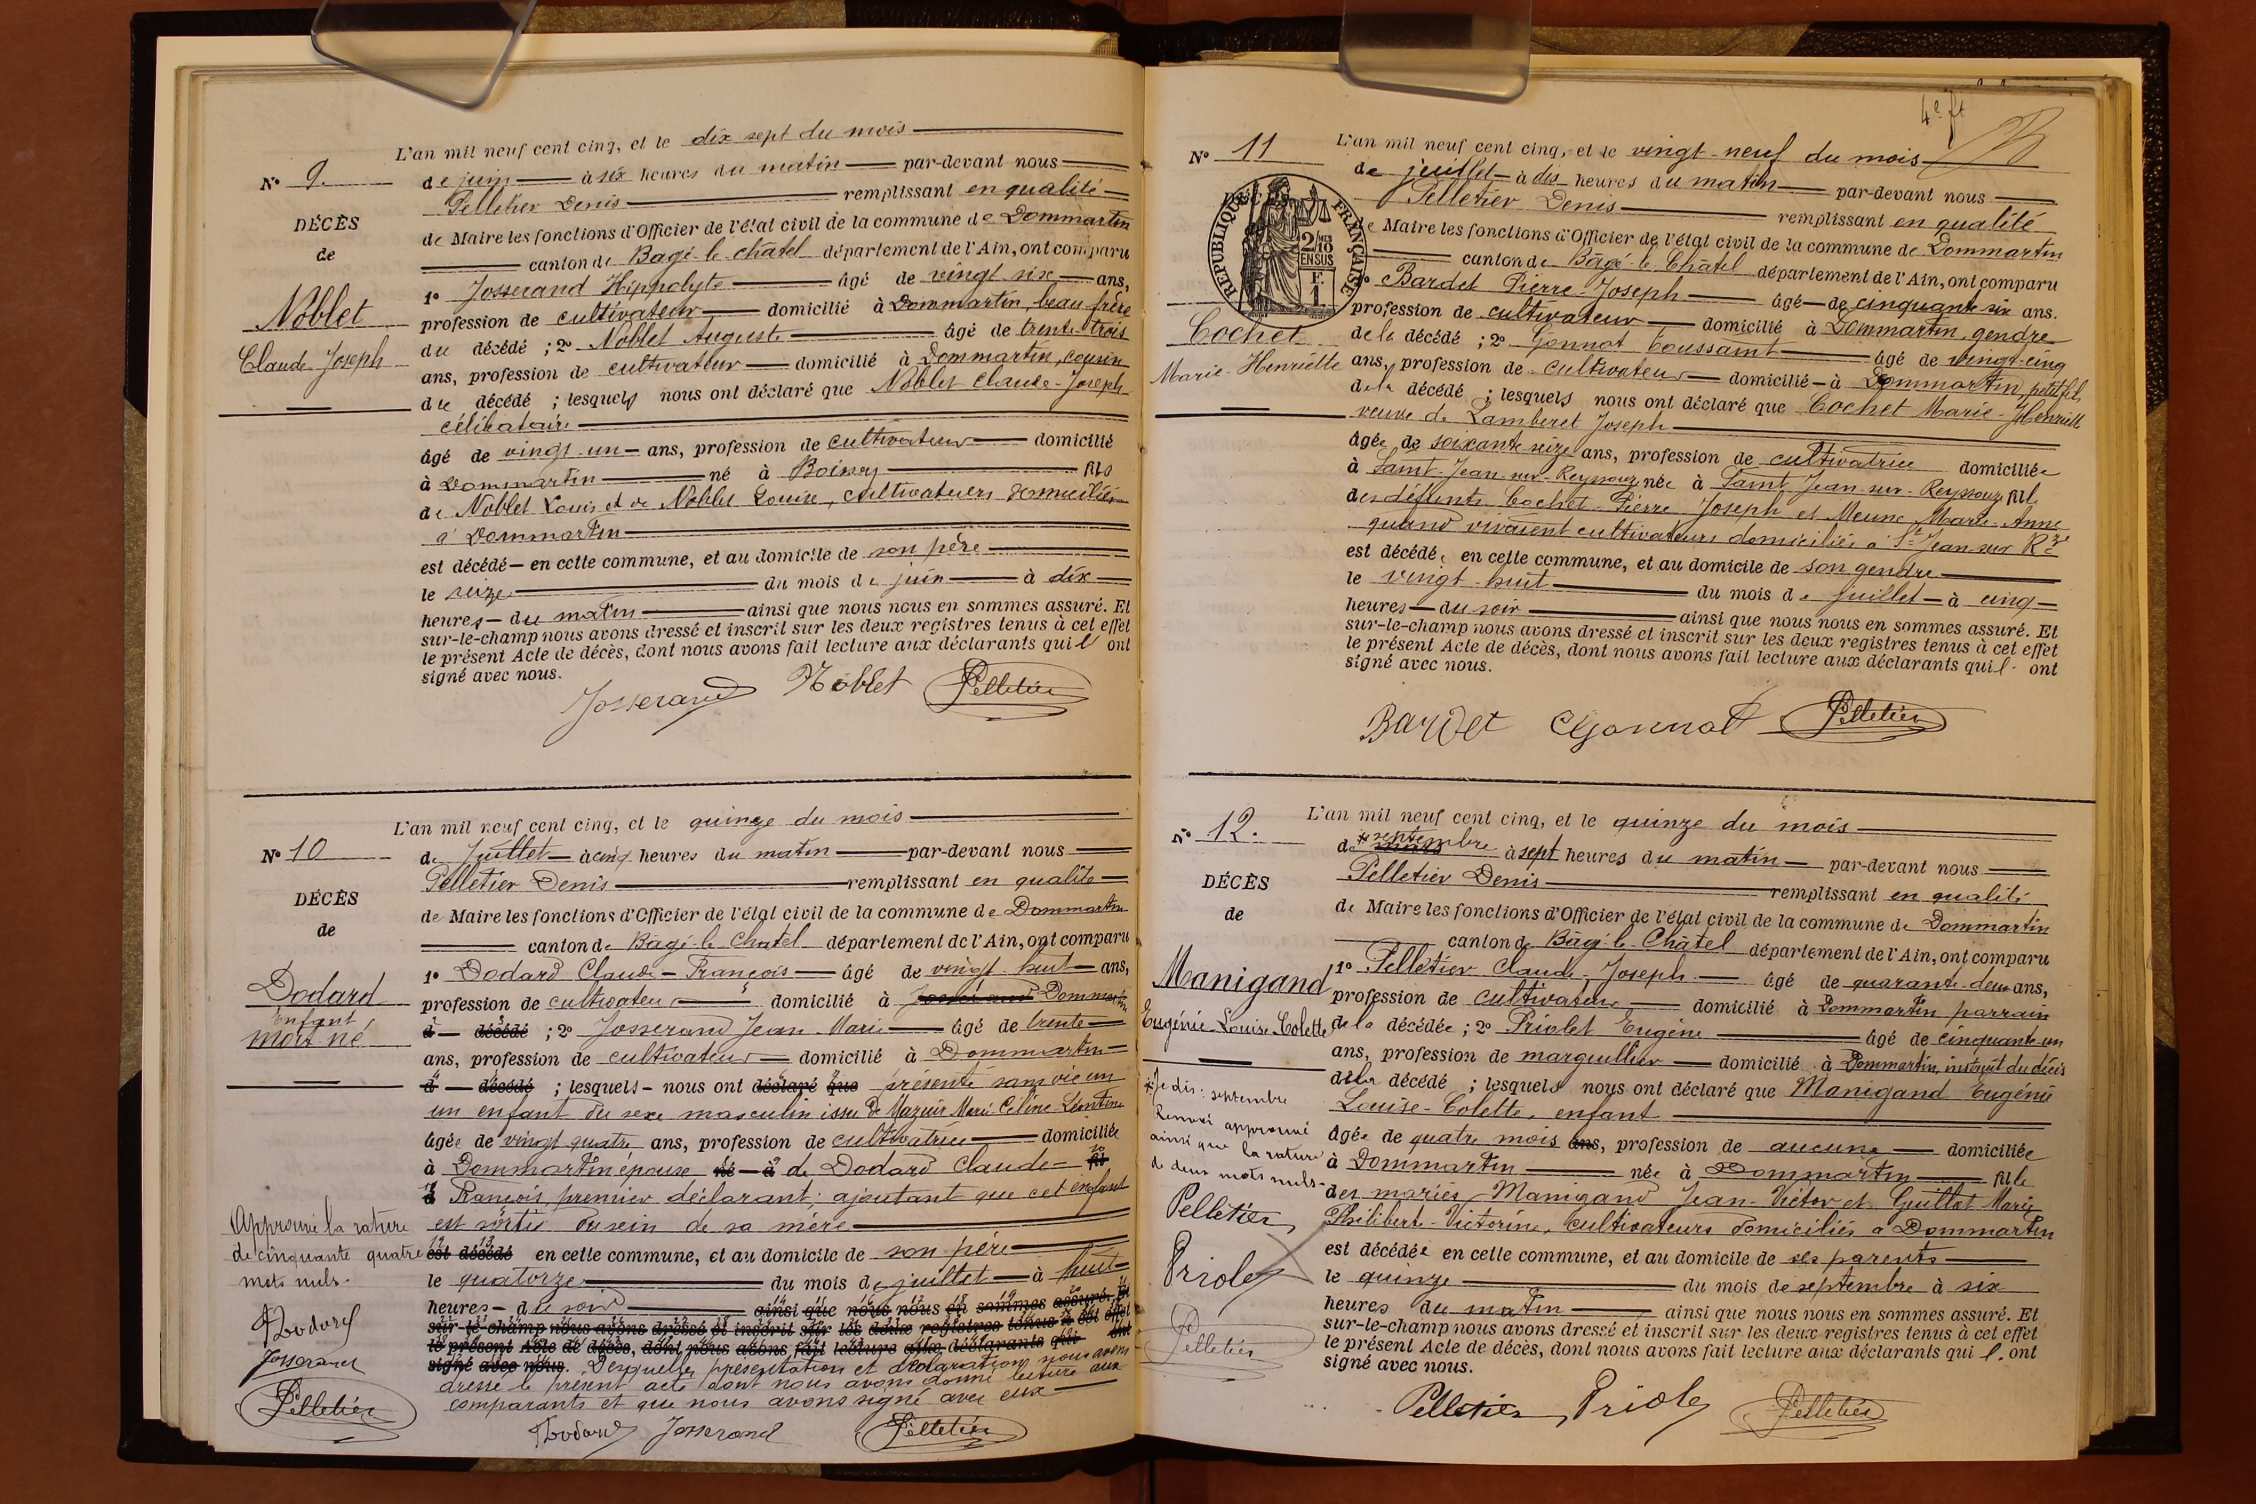 L'an mil neuf cent cinq, et le dix sept du mois
N° 9.
de juin à six heures du matin par-devant nous
Pelletier Denis remplissant en qualité
DÉCÈS
de Maire les fonctions d'Officier de l'état civil de la commune de Dommartin
de
canton de Bagé-le-châtel département de l'Ain, ont comparu
1° Josserand Hippolyte âgé de vingt six ans,
Noblet
profession de cultivateur domicilié à Dommartin, beau-frère
du décédé ; 2° Noblet Auguste âgé de trente-trois
Claude-Joseph
ans, profession de cultivateur domicilié à Dommartin, cousin
du décédé ; lesquels nous ont déclaré que Noblet Claude-Joseph
célibataire
âgé de vingt-un ans, profession de cultivateur domicilié
à Dommartin né à Boissey fils
de Noblet Louis et de Noblet Louise, cultivateurs domiciliés
à Dommartin
est décédé en cette commune, et au domicile de son père
le seize du mois de juin à dix
heures du matin ainsi que nous nous en sommes assuré. Et
sur-le-champ nous avons dressé et inscrit sur les deux registres tenus à cet effet
le présent Acte de décès, dont nous avons fait lecture aux déclarants qui l' ont
signé avec nous.
Josserand Noblet Pelletier
L'an mil neuf cent cinq, et le quinze du mois
N° 10
de Juillet à cinq heures du matin par-devant nous
Pelletier Denis remplissant en qualité
DÉCÈS
de Maire les fonctions d'Officier de l'état civil de la commune de Dommartin
de
canton de Bâgé-le-Chatel département de l'Ain, ont comparu
1° Dodard Claude-François âgé de vingt-huit ans,
Dodard
Enfant
mort né
profession de cultivateur domicilié à Dommartin
d décédé ; 2° Josserand Jean-Marie âgé de trente
ans, profession de cultivateur domicilié à Dommartin
d décédé ; lesquels nous ont déclaré que présenté sans vie un
un enfant du sexe masculin issu de Mazuir Marie Céline Léontine
âgée de vingt quatre ans, profession de cultivatrice domiciliée
à Dommartin épouse né à de Dodard Claude- fil
d François, premier déclarant; ajoutant que cet enfant
est sortis du sein de sa mère
est décédé en cette commune, et au domicile de son père
le quatorze du mois de juillet à huit
heures du soir ainsi que nous nous en sommes assuré. Et
sur-le-champ nous avons dressé et inscrit sur les deux registres tenus à cet effet
le présent Acte de décès, dont nous avons fait lecture aux déclarants qui ont
signé avec nous. Desquelles présentation et déclaration nous avons
dressé le présent acte dont nous avons donné lecture aux
comparants et que nous avons signé avec eux
Approuvé la rature
de cinquante quatre
mots nuls.
Dodard
Josserand
Pelletier
Dodard Josserand Pelletier
4e ft
N° 11
L'an mil neuf cent cinq, et le vingt-neuf du mois
de juillet à dix heures du matin par-devant nous
Pelletier Denis remplissant en qualité
RÉPUBLIQUE FRANÇAISE
2/10 EN SUS
F. 1
de Maire les fonctions d'Officier de l'état civil de la commune de Dommartin
canton de Bâgé-le-Châtel département de l'Ain, ont comparu
1° Bardet Pierre-Joseph âgé de cinquante six ans.
Cochet
Marie-Henriette
profession de cultivateur domicilié à Dommartin, gendre
de la décédé ; 2° Gonnot Toussaint âgé de vingt-cinq
ans, profession de cultivateur domicilié à Dommartin, petit fils
de la décédé ; lesquels nous ont déclaré que Cochet Marie-Henriett
veuve de Lamberet Joseph
âgée de soixante seize ans, profession de cultivatrice domiciliée
à Saint-Jean-sur-Reyssouze née à Saint-Jean-sur-Reyssouze fille
des défunts Cochet Pierre-Joseph et Meune Marie-Anne
quand vivaient cultivateurs domiciliés à St-Jean-sur Rze
est décédée en cette commune, et au domicile de son gendre
le vingt-huit du mois de juillet à cinq
heures du soir ainsi que nous nous en sommes assuré. Et
sur-le-champ nous avons dressé et inscrit sur les deux registres tenus à cet effet
le présent Acte de décès, dont nous avons fait lecture aux déclarants qui l' ont
signé avec nous.
Bardet Gonnot Pelletier
L'an mil neuf cent cinq, et le quinze du mois
N° 12.
de septembre à sept heures du matin par-devant nous
Pelletier Denis remplissant en qualité
DÉCÈS
de Maire les fonctions d'Officier de l'état civil de la commune de Dommartin
de
canton de Bâgé-le-Châtel département de l'Ain, ont comparu
1° Pelletier Claude-Joseph âgé de quarante-deux ans,
Manigand
profession de cultivateur domicilié à Dommartin parrain
Eugénie-Louise-Colette
de la décédée ; 2° Priolet Eugène âgé de cinquante-un
ans, profession de marguillier domicilié à Dommartin, instruit du décès
de la décédé ; lesquels nous ont déclaré que Manigand Eugénie
Louise-Colette, enfant
âgée de quatre mois ans, profession de aucune domiciliée
à Dommartin née à Dommartin fille
des mariés Manigand Jean-Victor et Guillot Marie
Philibert-Victorine, cultivateurs domiciliés à Dommartin
est décédée en cette commune, et au domicile de ses parents
le quinze du mois de septembre à six
heures du matin ainsi que nous nous en sommes assuré. Et
sur-le-champ nous avons dressé et inscrit sur les deux registres tenus à cet effet
le présent Acte de décès, dont nous avons fait lecture aux déclarants qui l' ont
signé avec nous.
Je dis: septembre
Renvoi approuvé
ainsi que la rature
de deux mots nuls.
Pelletier
Priolet
Pelletier
Pelletier Priolet Pelletier